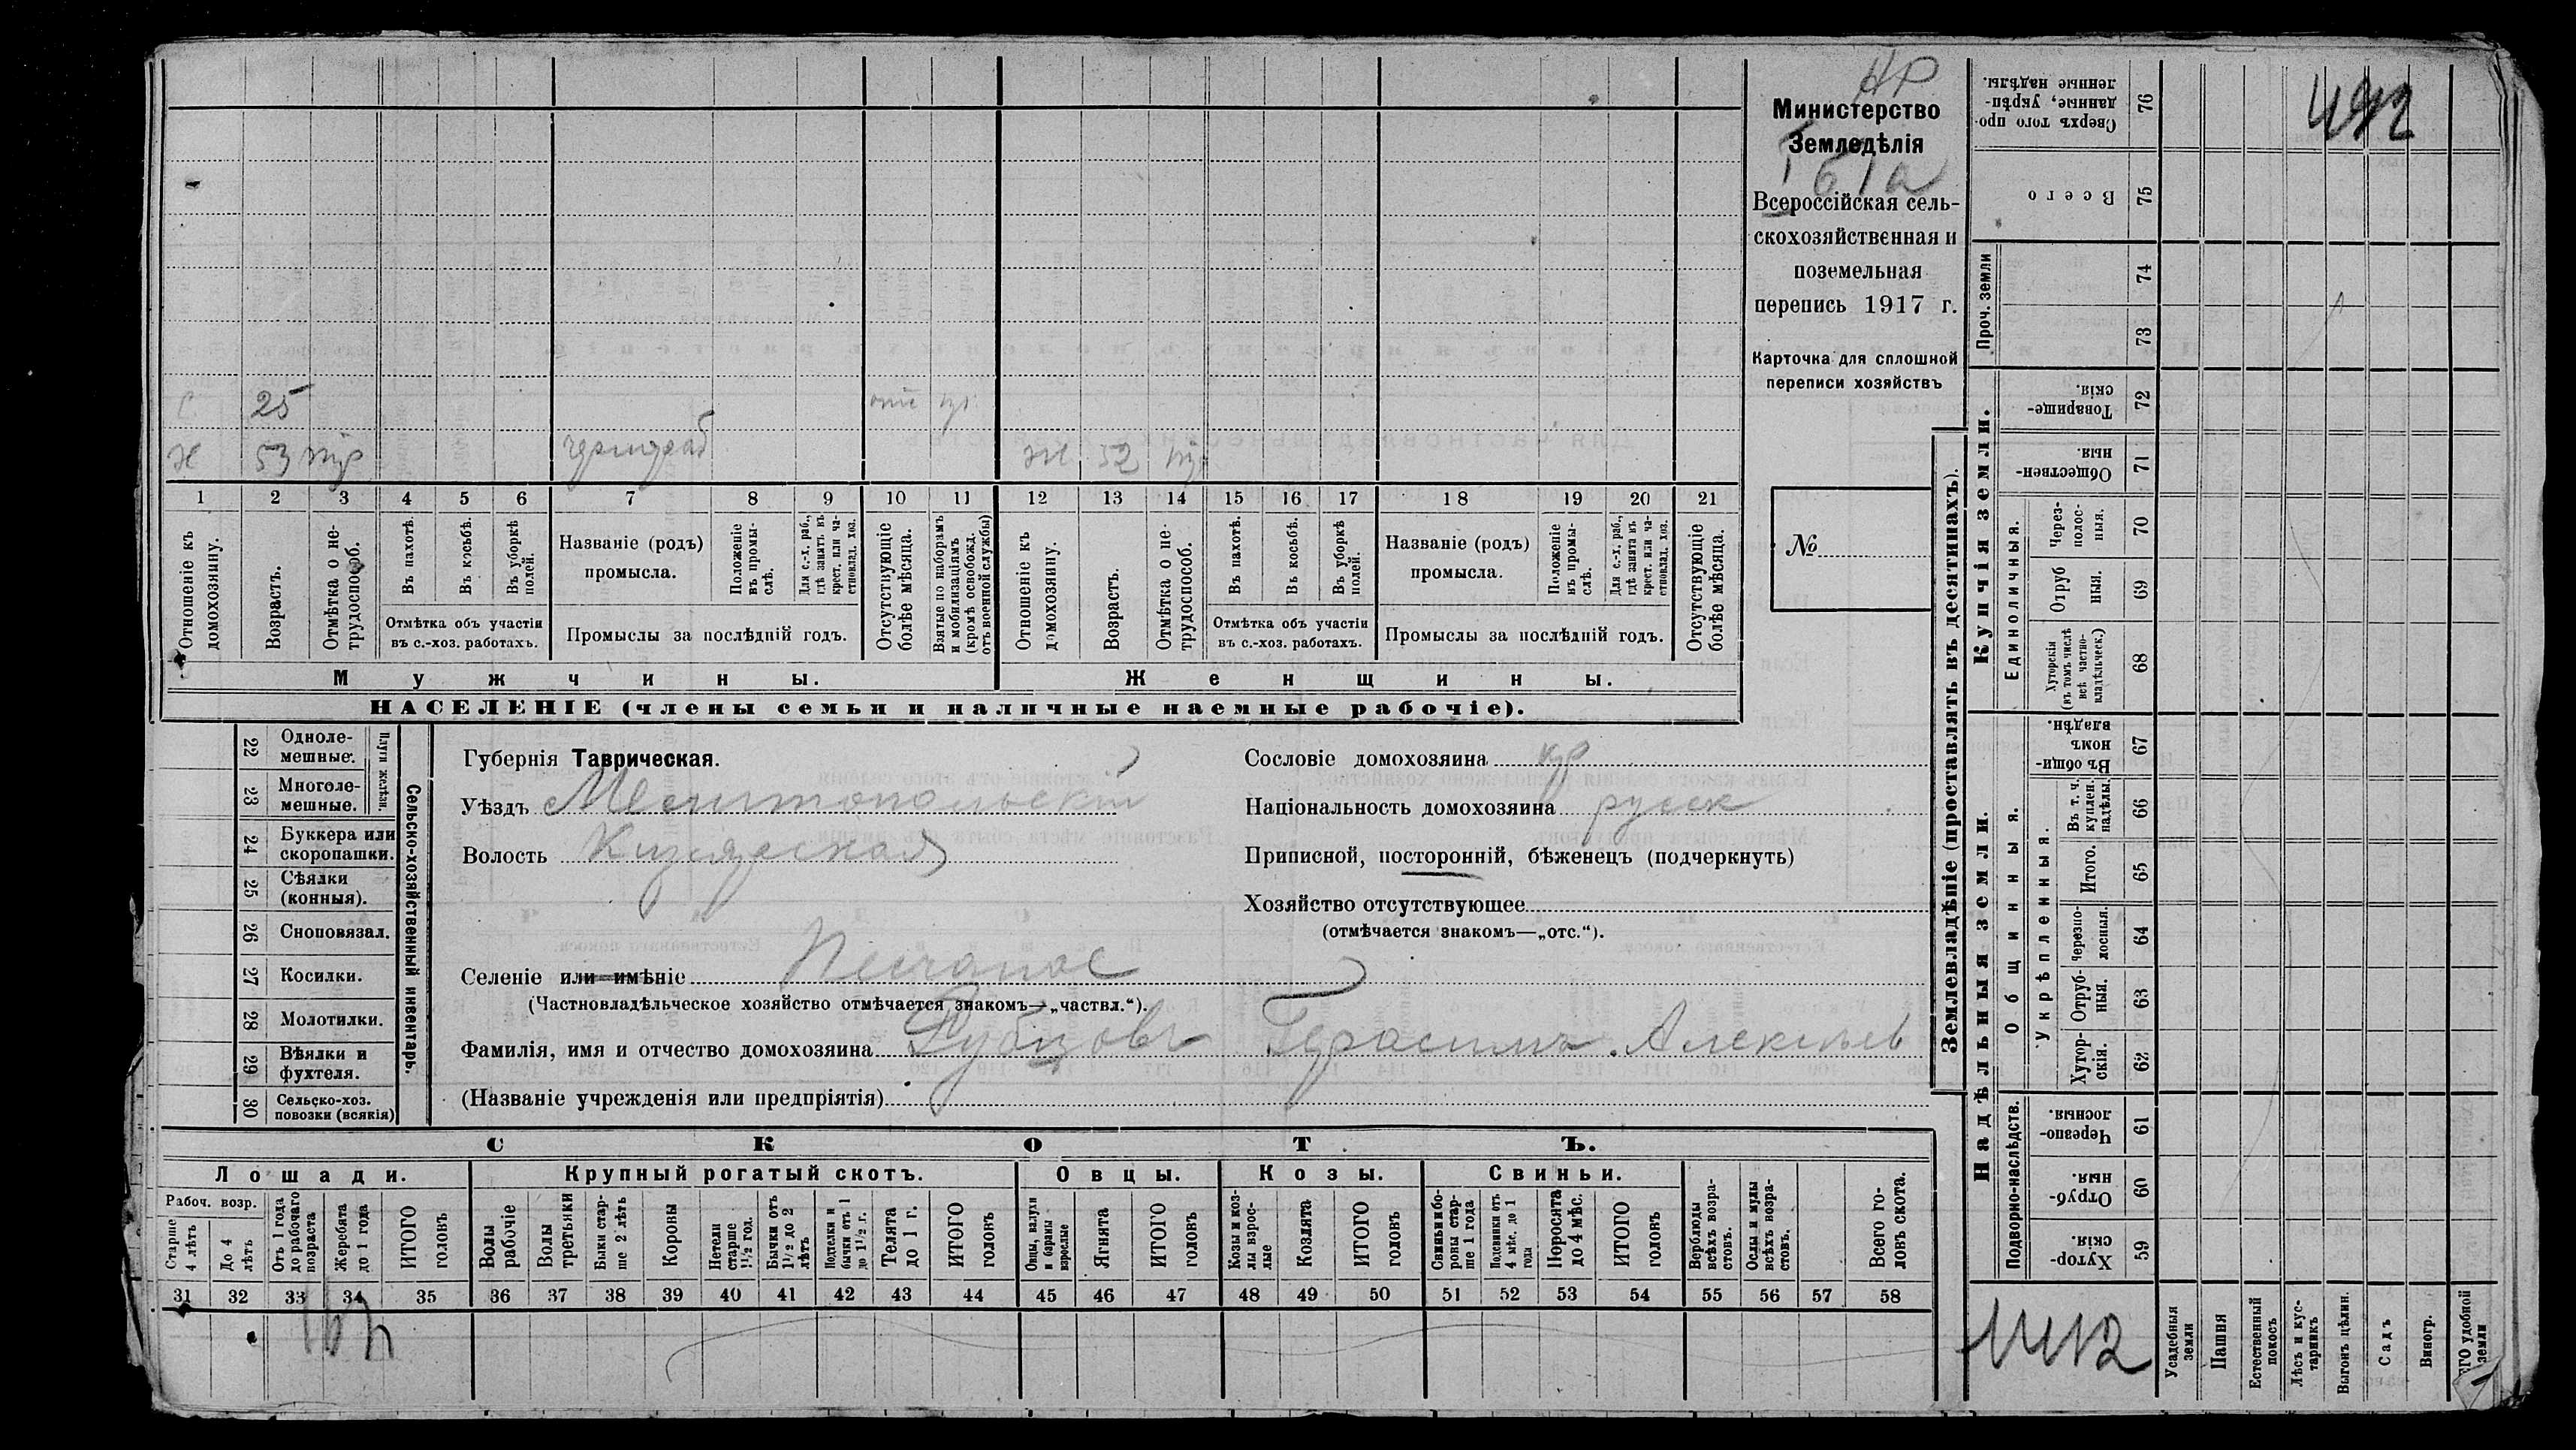 НР
Министерство
Земледѣлія
Всероссійская сель-
скохозяйственная и
поземельная
перепись 1917 г.
Карточка для сплошной
переписи хозяйствъ
№
с 25
х 53 ж 52
1 2 3 4 5 6 7 8 9 10 11 12 13 14 15 16 17 18 19 20 21
Отношеніе къ домохозяину.
Возрастъ.
Отмѣтка о не-трудоспособ.
Въ пахотѣ.
Въ косьбѣ.
Въ уборкѣ полей.
Отмѣтка объ участіи
въ с.-хоз. работахъ.
Названіе (родъ)
промысла.
Положеніе въ промы-слѣ.
Для с.-х. раб., гдѣ занятъ въ крест. или ча-стновлад. хоз.
Промыслы за послѣдній годъ.
Отсутствующіе болѣе мѣсяца.
Взятые по наборамъ и мобилизаціямъ (кромѣ освобожд. отъ военной службы)
Отношеніе къ домохозяину.
Возрастъ.
Отмѣтка о не-трудоспособ.
Въ пахотѣ.
Въ косьбѣ.
Въ уборкѣ полей.
Отмѣтка объ участіи
въ с.-хоз. работахъ.
Названіе (родъ)
промысла.
Положеніе въ промы-слѣ.
Для с.-х. раб., гдѣ занята въ крест. или ча-стновлад. хоз.
Промыслы за послѣдній годъ.
Отсутствующіе болѣе мѣсяца.
Мужчины. Женщины.
НАСЕЛЕНІЕ (члены семьи и наличные наемные рабочіе).
22 Одноле-мешные.
23 Многоле-мешные.
Плуги желѣзн.
24 Буккера или скоропашки.
25 Сѣялки (конныя).
26 Сноповязал.
27 Косилки.
28 Молотилки.
29 Вѣялки и фухтеля.
30 Сельско-хоз. повозки (всякія)
Сельско-хозяйственный инвентарь.
Губернія Таврическая.
Уѣздъ Мелитопольскій
Волость Кизіярская
Селеніе или имѣніе Песчаное
(Частновладѣльческое хозяйство отмѣчается знакомъ—„частвл.“).
Фамилія, имя и отчество домохозяина Рубцовъ Герасимъ Алексѣев
(Названіе учрежденія или предпріятія)
Сословіе домохозяина кр
Національность домохозяина русск
Приписной, посторонній, бѣженецъ (подчеркнуть)
Хозяйство отсутствующее
(отмѣчается знакомъ—„отс.“).
СКОТЪ.
Лошади. Крупный рогатый скотъ. Овцы. Козы. Свиньи.
Рабоч. возр.
Старше 4 лѣтъ
До 4 лѣтъ
Отъ 1 года до рабочаго возраста
Жеребята до 1 года
ИТОГО головъ
Волы рабочіе
Волы третьяки
Быки стар-ше 2 лѣтъ
Коровы
Нетели старше 1½ год.
Бычки отъ 1½ до 2 лѣтъ
Подтелки и бычки отъ 1 до 1½ г.
Телята до 1 г.
ИТОГО головъ
Овцы, валухи и бараны взрослые
Ягнята
ИТОГО головъ
Козы и коз-лы взрос-лые
Козлята
ИТОГО головъ
Свиньи и бо-ровы стар-ше 1 года
Подсвинки отъ 4 мѣс. до 1 года
Поросята до 4 мѣс.
ИТОГО головъ
Верблюды всѣхъ возра-стовъ.
Ослы и мулы всѣхъ возра-стовъ.
Всего го-ловъ скота.
31 32 33 34 35 36 37 38 39 40 41 42 43 44 45 46 47 48 49 50 51 52 53 54 55 56 57 58
Землевладѣніе (проставлять въ десятинахъ).
Купчія земли.
Надѣльныя земли.
Сверхъ того про-данные, укрѣп-ленные надѣлы. 76
Всего 75
Проч. земли 74 73
Товарище-скія. 72
Обществен-ныя. 71
Единоличныя.
Через-полос-ныя. 70
Отруб ныя. 69
Хуторскія (въ томъ числѣ всѣ частно-владѣльческ.) 68
Общинныя.
Въ общи-номъ владѣн. 67
Укрѣпленныя.
Въ т. ч. куплен. надѣлы. 66
Итого. 65
Черезпо-лосныя. 64
Отруб-ныя. 63
Хутор-скія. 62
Подворно-наслѣдств.
Черезпо-лосныя. 61
Отруб-ныя. 60
Хутор-скія. 59
Усадебныя земли
Пашня
Естественный покосъ
Лѣсъ и кус-тарникъ
Выгонъ цѣлин.
Садъ
Виногр.
ЕГО удобной земли